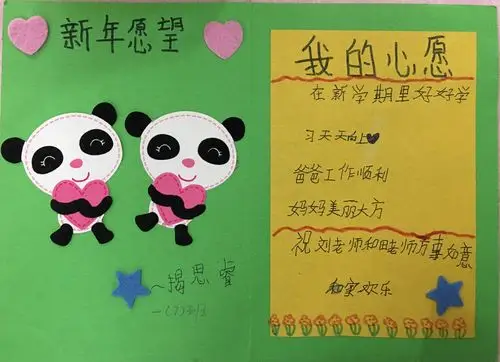 新年愿望
~揭思睿
一(7)班
我的心愿
在新学期里好好学
习天天向上
爸爸工作顺利
妈妈美丽大方
祝刘老师和田老师万事如意
和家欢乐